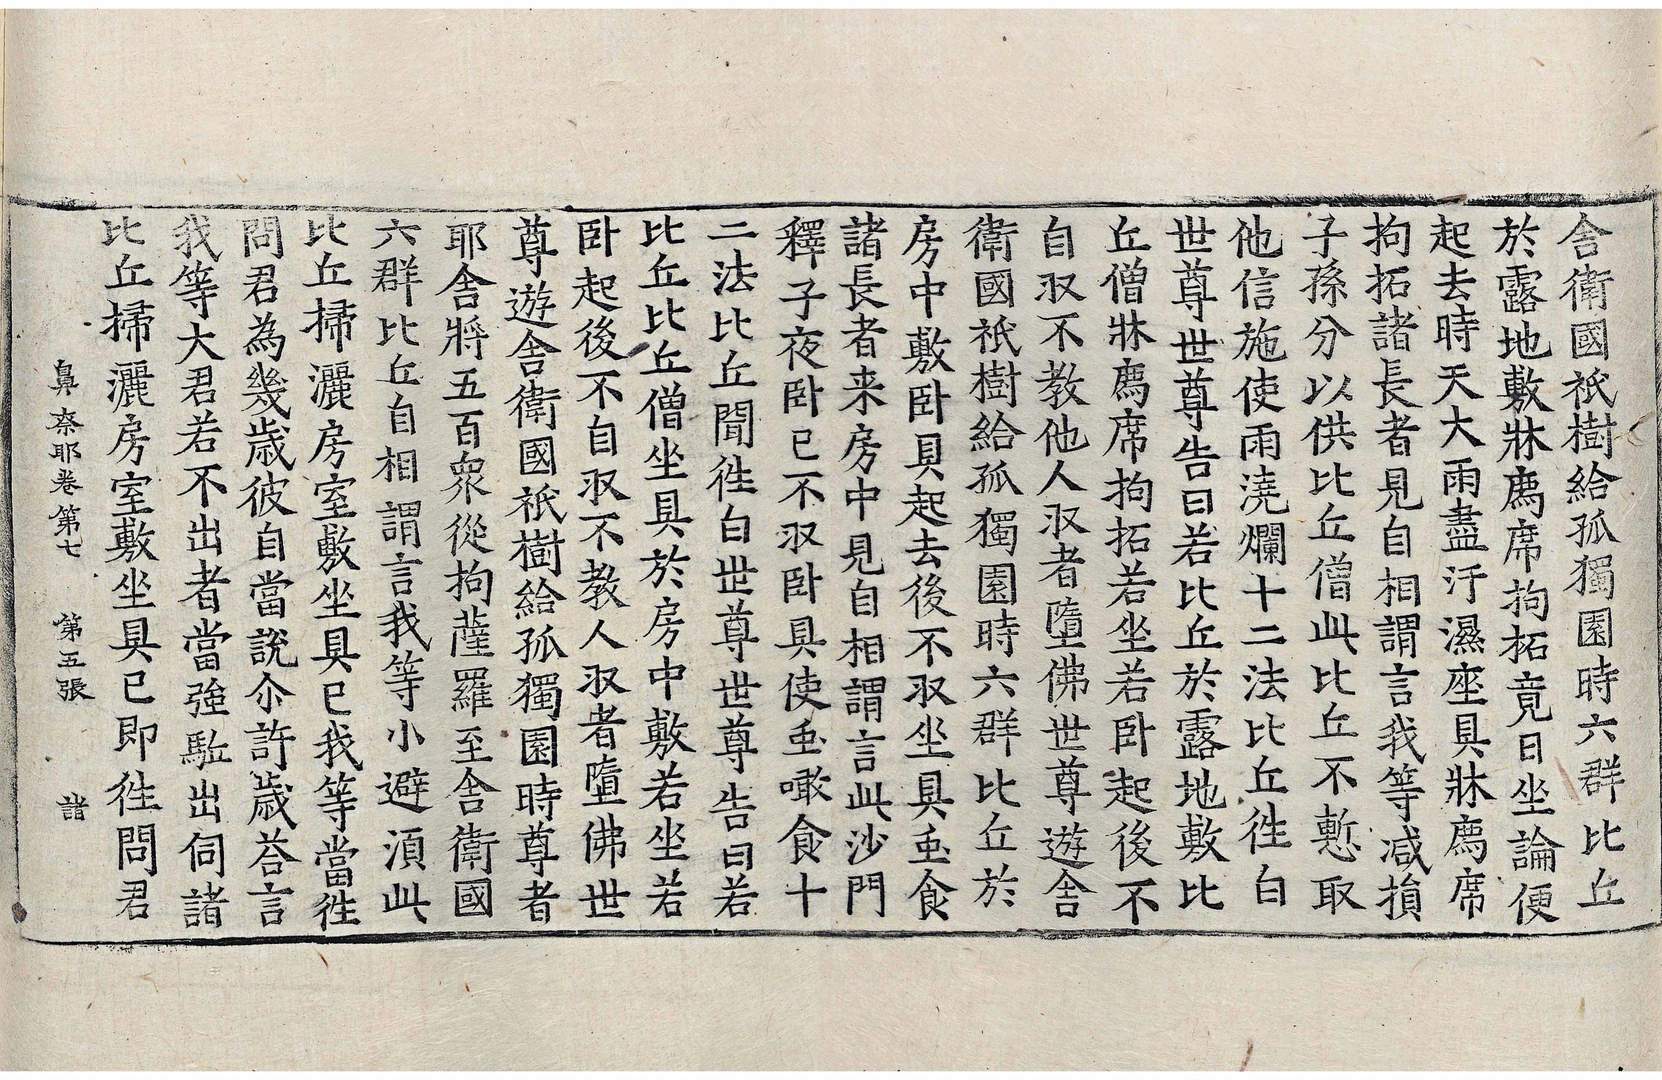 舎衛國祇樹給孤獨園時六群比丘
於露地敷牀薦席拘拓竟日坐論便
起去時天大雨盡汙濕座具牀薦席
拘拓諸長者見自相謂言我等減損
子孫分以供比丘僧此比丘不慙取
他信施使雨澆爛十二法比丘徃白
世尊世尊告曰若比丘於露地敷比
丘僧牀薦席拘拓若坐若卧起後不
自収不教他人収者墮佛世尊遊舎
衛國祇樹給孤獨園時六群比丘於
房中敷卧具起去後不収坐具虫食
諸長者来房中見自相謂言此沙門
釋子夜卧已不収卧具使虫噉食十
二法比丘聞徃白世尊世尊告曰若
比丘比丘僧坐具於房中敷若坐若
卧起後不自収不教人収者墮佛世
尊遊舎衛國祇樹給孤獨園時尊者
耶舎將五百衆從拘薩羅至舎衛國
六群比丘自相謂言我等小避湏此
比丘掃灑房室敷坐具已我等當徃
問君為幾歳彼自當説尒許歳荅言
我等大君若不出者當強駈出伺諸
比丘掃灑房室敷坐具已即徃問君
鼻奈耶卷第七　第五張　諸